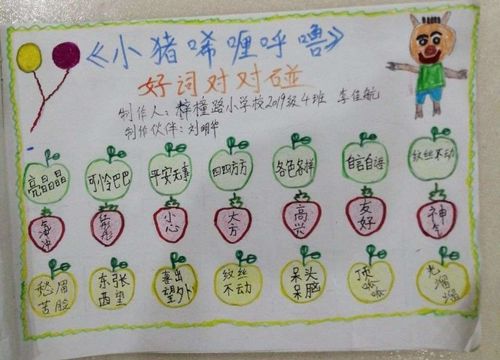 《小猪唏哩呼噜》
好词对对碰
制作人：梓橦路小学校2019级4班 李佳航
制作伙伴：刘明华
亮晶晶 可怜巴巴 平安无事 四四方方 各色各样 自言自语 纹丝不动
气冲冲 小心 大方 高兴 友好 神气
愁眉苦脸 东张西望 喜出望外 纹丝不动 呆头呆脑 顶呱呱 光溜溜